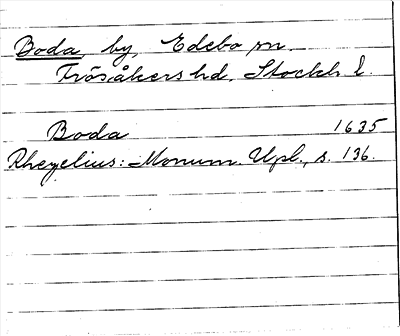 Boda, by, Edebo sn.
Frösåkers hd. Stockh. l.
Boda 1635
Rhezelius: Monum. Upl., s. 136.